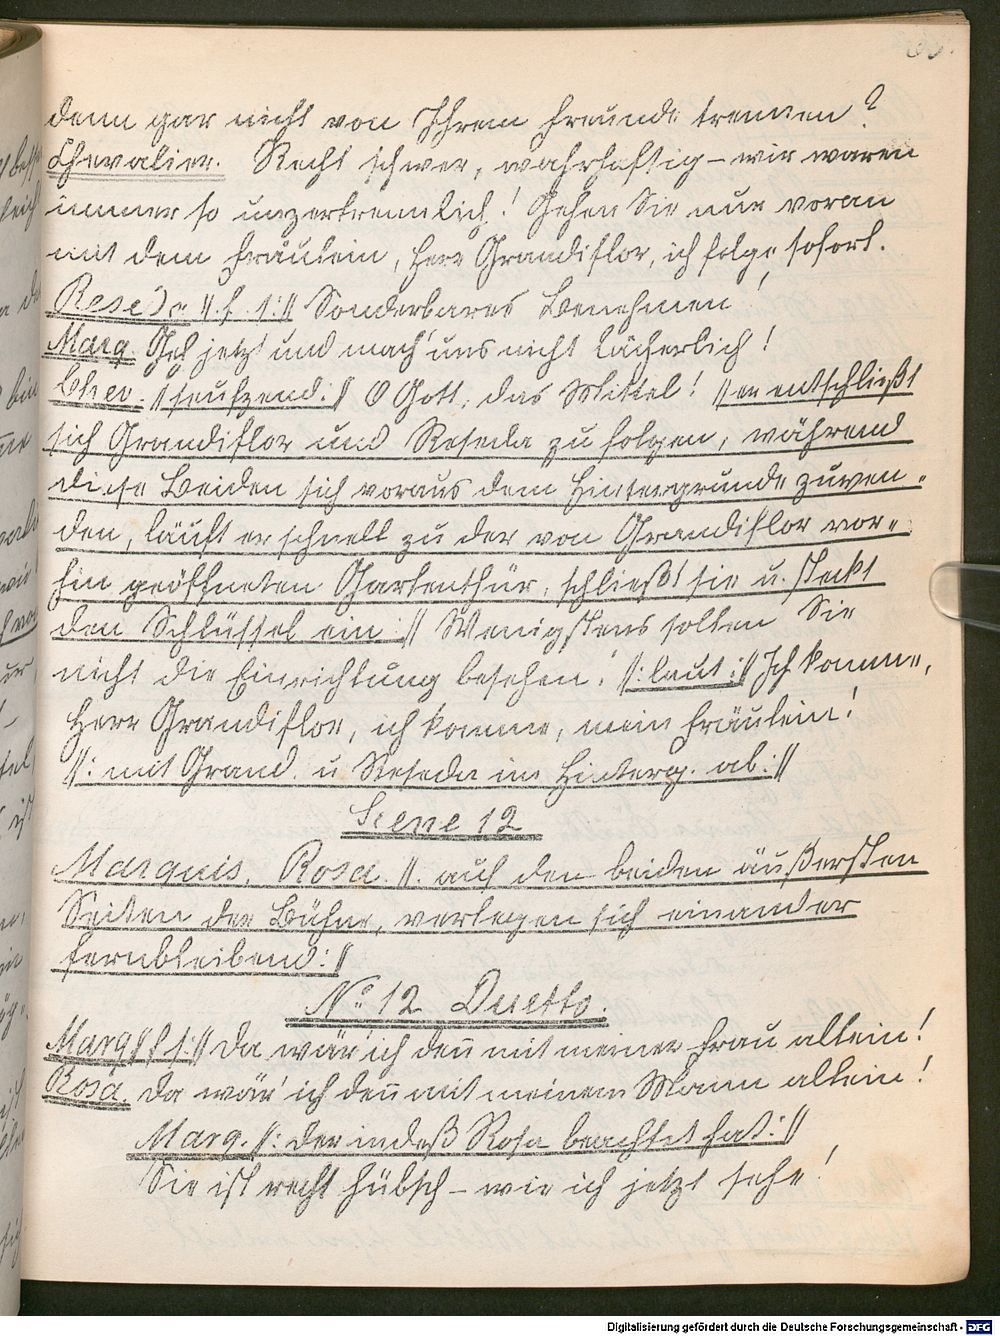 denn gar nicht von Ihrem Freunde trennen?
Chevalier. Recht schwer, wahrhaftig – wir waren
immer so unzertrennlich! Gehen Sie nur voran
mit dem Fräulein, Herr Grandiflor, ich folge sofort.
Reseda //:f. s:// Sonderbares Benehmen!
Marq. Geh jetzt und mach' uns nicht lächerlich!
Chev. //seufzend:// O Gott, das Mittel! //er entschließt
sich Grandiflor und Reseda zu folgen, während
diese Beiden sich voraus dem Hintergrunde zuwen-
den, läuft er schnell zu der von Grandiflor vor-
hin geöffneten Gartenthür, schließt sie u. steckt
den Schlüssel ein:// Wenigstens sollen Sie
nicht die Einrichtung besehen! //:laut:// Ich komme,
Herr Grandiflor, ich komme, mein Fräulein!
//: mit Grand. u Reseda im Hinterg. ab.://
Scene 12
Marquis, Rosa. //: auf den beiden äußersten
Seiten der Bühne, verlegen sich einander
fernbleibend://
No 12 Duetto
Marq //f s:// Da wär' ich deñ mit meiner Frau allein!
Rosa. Da wär' ich deñ mit meinem Mann allein!
Marq. //: der indeß Rosa beachtet hat://
Sie ist recht hübsch – wie ich jetzt sehe!
Digitalisierung gefördert durch die Deutsche Forschungsgemeinschaft - DFG